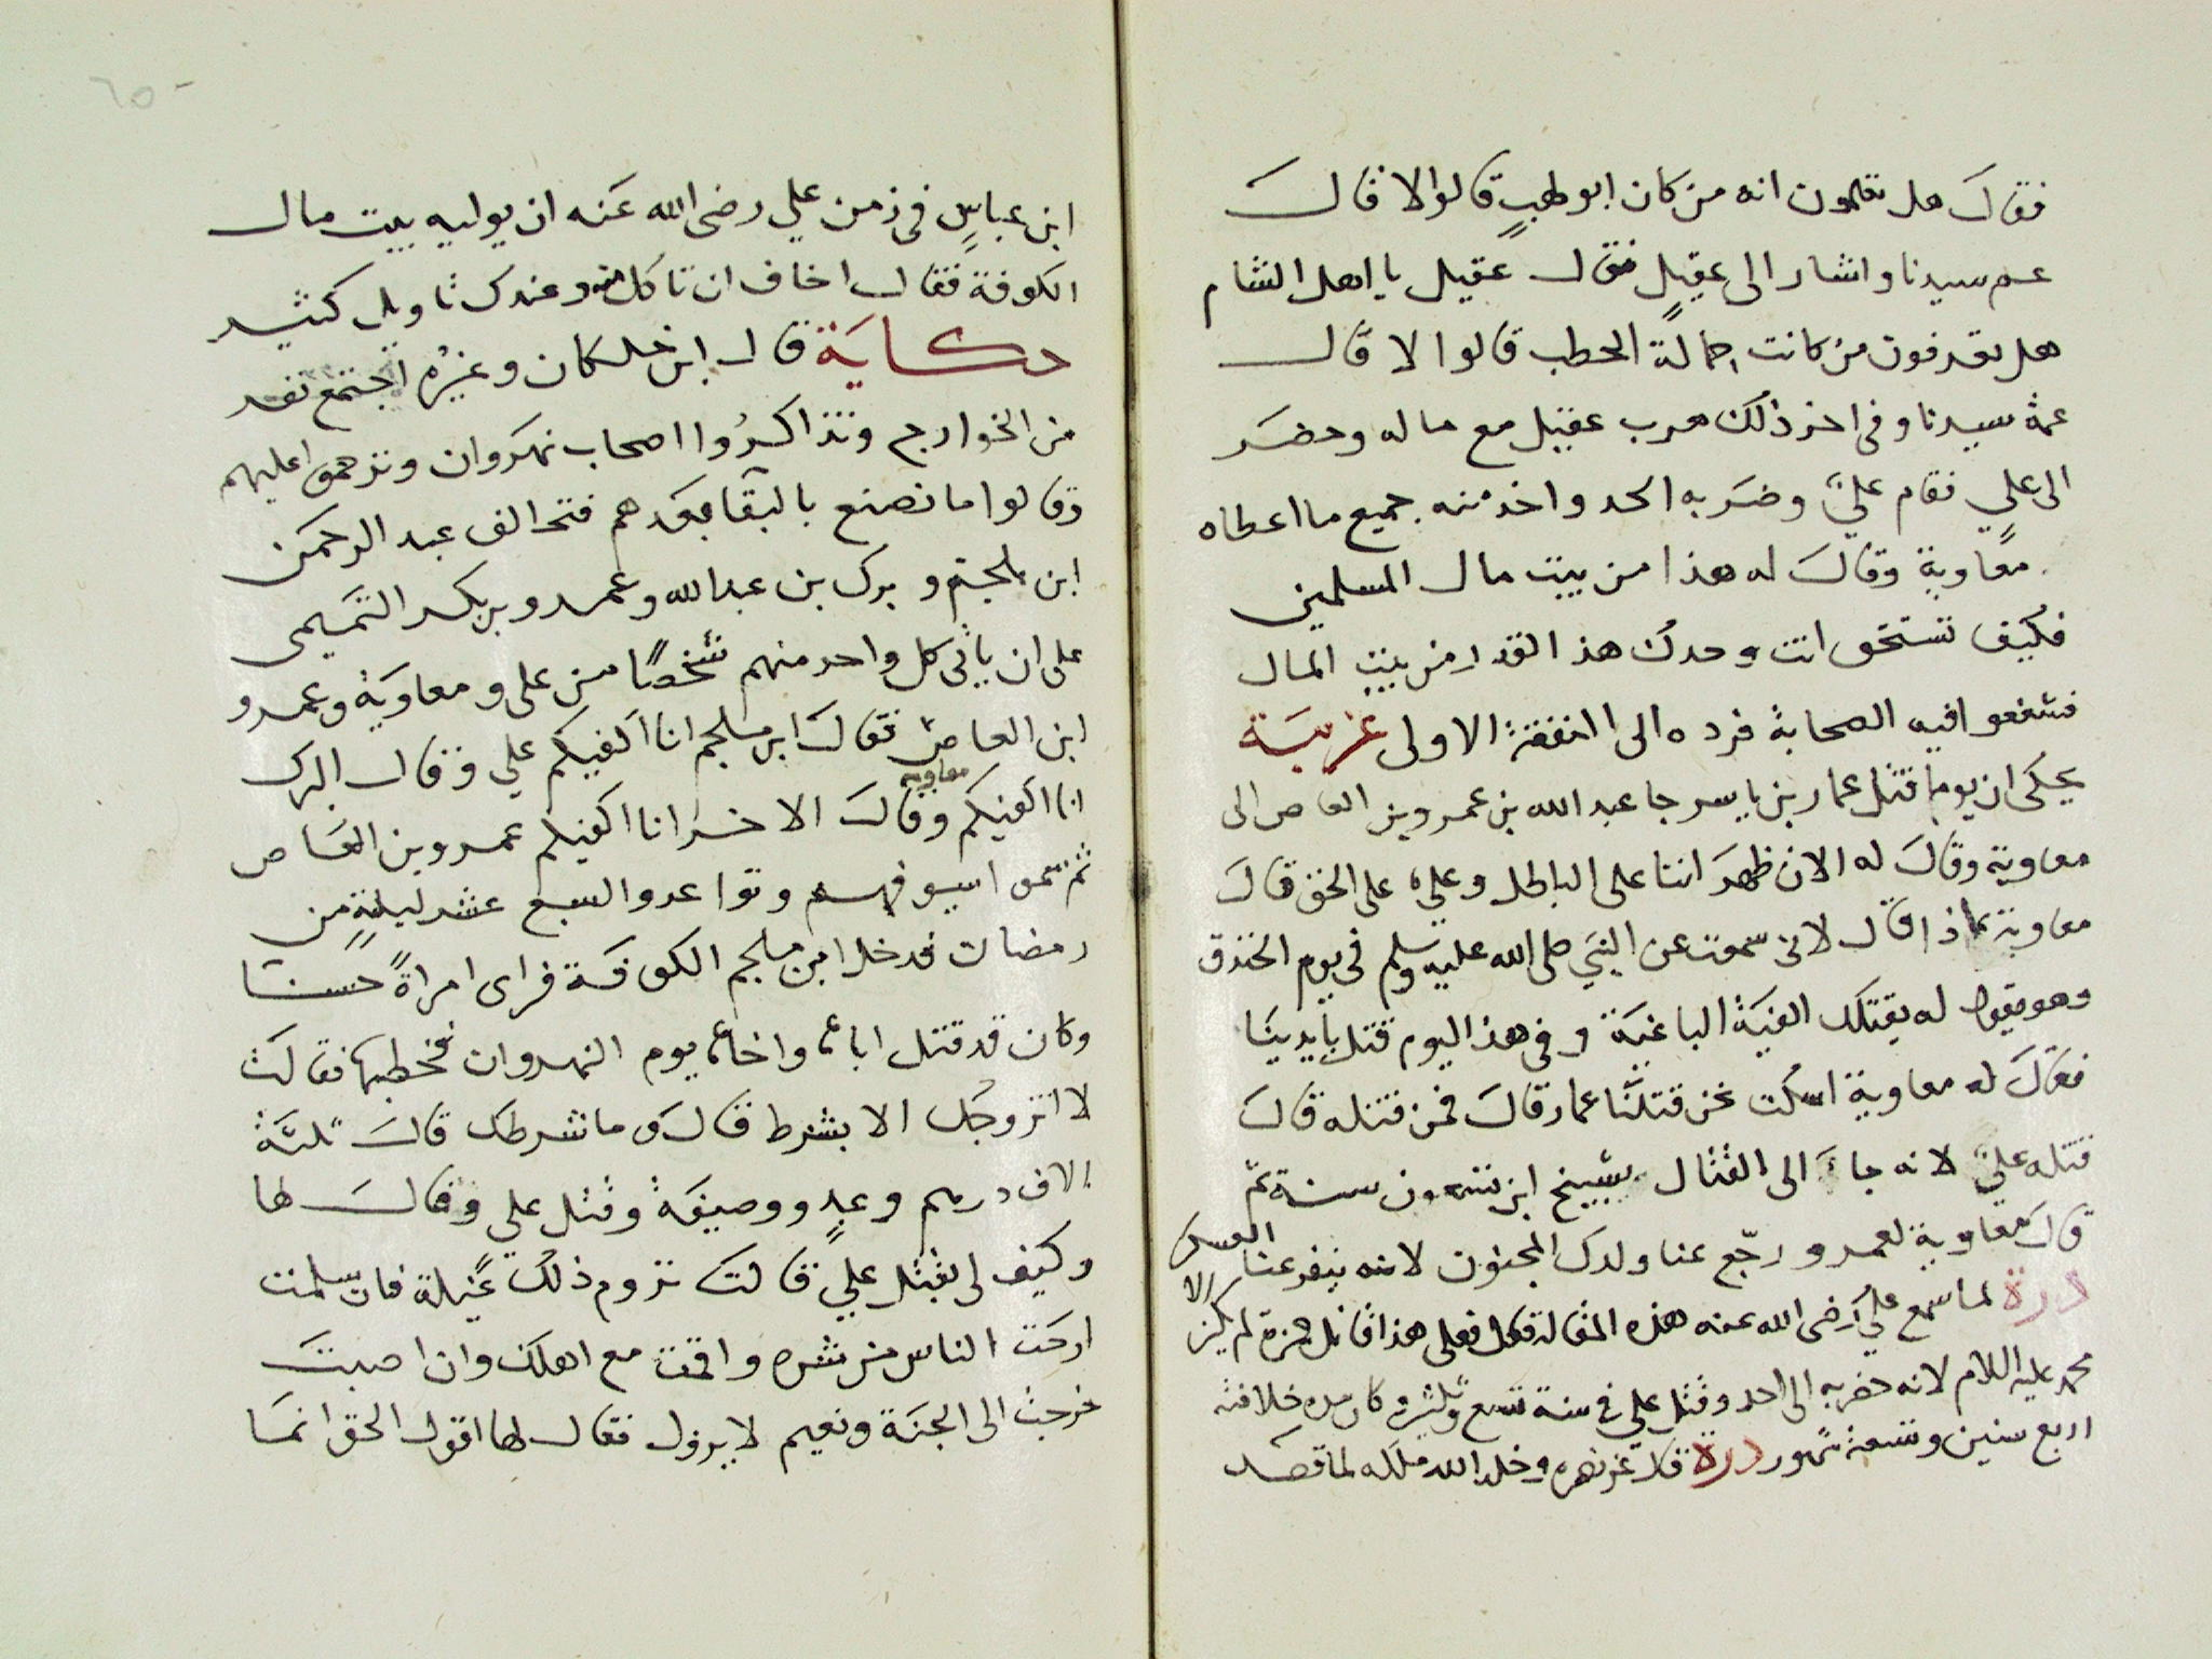 فقال هل تعلمون انه من كان ابو لهب قالوا لا قال
عم سيدنا واشار الى عقيل فقال عقيل يا اهل الشام
هل تعرفون من كانت حمالة الحطب قالوا لا قال
عمة سيدنا وفى اخر ذلك هرب عقيل مع ماله وحضر
الى علي فقام علي وضربه الحد واخذ منه جميع ما اعطاه
معاوية وقال له هذا من بيت مال المسلمين
فكيف تستحق انت وحدك هذ القدر من بيت المال
فشفعوا فيه الصحابة فرده الى النفقة الاولى غريبة
يحكى ان يوما قتل عمار بن ياسر جا عبد الله بن عمرو بن العاص الى
معاوية وقال له الان ظهر اننا على الباطل وعلي على الحق قال
معاوية بماذا قال لانى سمعت عن النبي صلى الله عليه وسلم فى يوم الخندق
وهو يقول له يقتلك الفية الباغية وفى هذ اليوم قتل بايدينا
فقال له معاوية اسكت نحن قتلنا عمار قال فمن قتله قال
قتله علي لانه جاء الى القتال بشيخ ابن تسعون سنة ثم
قال معاوية لعمرو رجع عنا ولدك المجنون لانه ينفر عنا العسكر
درة لما سمع علي رضى الله عنه هذه المقالة قال فعلى هذا قاتل حمزة لم يكن الا
محمد عليه السلام لانه حضر به الى احد وقتل علي فى سنة تسع وثلثين وكان مده خلافته
اربع سنين وتسعة شهور درة قال عز نصره وخلد الله ملكه لما قصد
٦٥
ابن عباس فى زمن علي رضى الله عنه ان يوليه بيت مال
الكوفة فقال اخاف ان تاكل منه وعندك تاويل كثير
حكاية قال ابن خلكان وغيره اجتمع نفر
من الخوارج وتذاكروا اصحاب نهروان وترحموا عليهم
وقالوا ما نصنع بالبقا بعدهم فتحالف عبد الرحمن
ابن ملجم و برك بن عبد الله وعمرو بن بكر التميمى
على ان ياتى كل واحد منهم شخصا من على ومعاوية وعمرو
ابن العاص فقال ابن ملجم انا اكفيكم علي وقال البرك
انا اكفيكم معاوية وقال الاخر انا اكفيكم عمرو بن العاص
ثم سموا سيوفهم وتواعدوا السبع عشر ليلة من
رمضان فدخل ابن ملجم الكوفة فراى امراة حسنا
وكان قد قتل اباها واخاها يوم النهروان فخطبها فقالت
لا اتزوجك الا بشرط قال وما شرطك قالت ثلثة
الاف درهم وعبد ووصيفة وقتل علي وقال لها
وكيف لى بقتل علي قالت تروم ذلك غيلة فان سلمت
ارحت الناس من شره واقمت مع اهلك وان اصبت
خرجت الى الجنة ونعيم لا يزول فقال لها اقول الحق انما